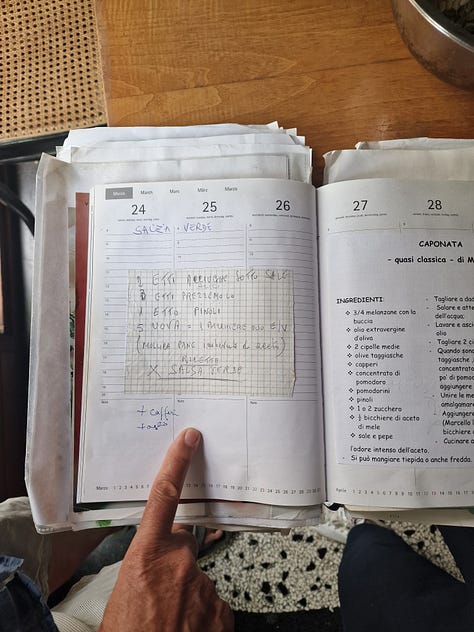 Marzo March Mars März Marzo
24 25 26
SALZA VERDE
2 ETTI ACCIUGHE SOTTO SALE
3 ETTI PREZZEMOLO
1 ETTO PINOLI
5 UOVA = 1 BICCHIERE OLIO E/V
(MOLLICA PANE IMBEVUTA DI ACETO)
RICETTA
X SALSA VERDE
Note Note Note
+ capperi
Marzo
27 28
CAPONATA
- quasi classica - di M
INGREDIENTI:
❖ 3/4 melanzane con la
buccia
❖ olio extravergine
d'oliva
❖ 2 cipolle medie
❖ olive taggiasche
❖ capperi
❖ concentrato di
pomodoro
❖ pomodorini
❖ pinoli
❖ 1 o 2 zucchero
❖ ½ bicchiere di aceto
di mele
❖ sale e pepe
- Tagliare a dad
- Salare e atte
dell'acqua;
- Lavare e asci
olio
- Tagliare 2 ci
- Quando sono
taggiasche
concentrato
po' di pomod
aggiungere
- Unire le me
amalgamare
- Aggiungere
(Marcello l
bicchiere
- Cucinare a
l'odore intenso dell'aceto.
- Si può mangiare tiepida o anche fredda.
Aprile